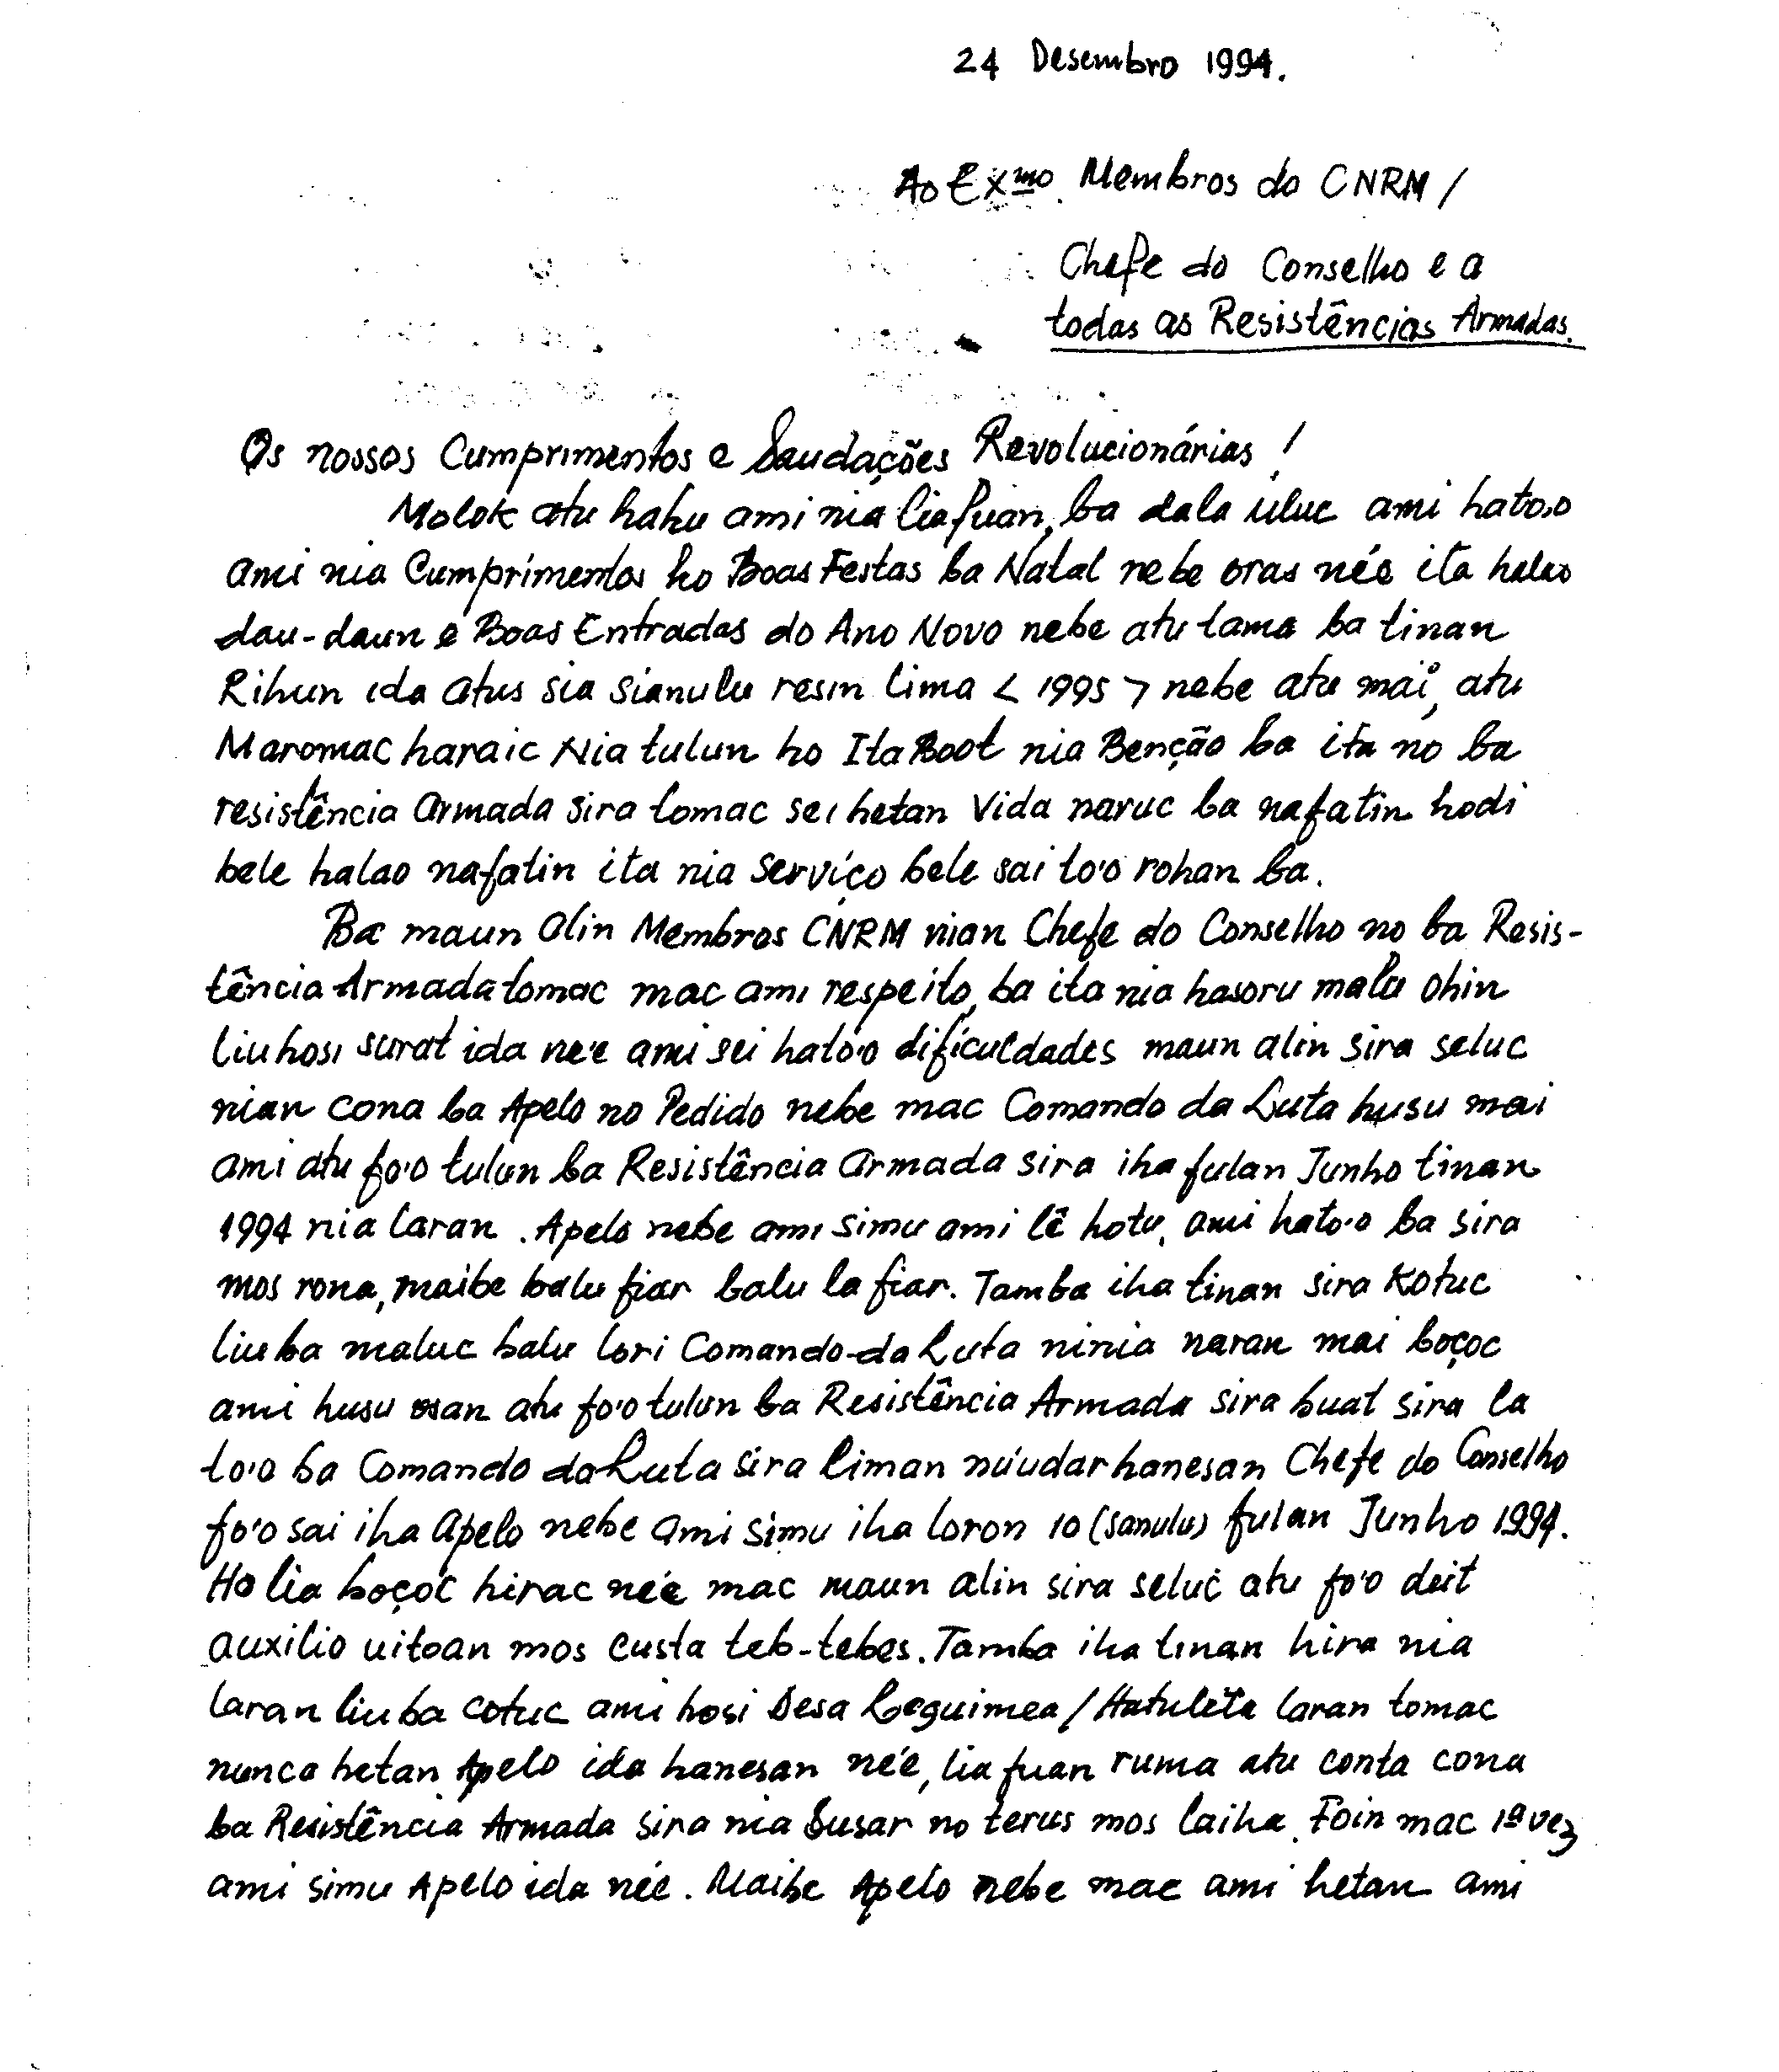 24 Desembro 1994.
Ao Exmo. Membros do CNRM /
Chefe do Conselho e a
todas as Resistências Armadas.
Os nossos Cumprimentos e Saudações Revolucionárias !
Molok atu hahu ami nia lia fuan, ba dala uluc ami hato,o
ami nia Cumprimentos ho Boas Festas ba Natal nebe oras née ita halao
dau-daun e Boas Entradas do Ano Novo nebe atu tama ba tinan
Rihun ida atus sia sianulu resin lima < 1995 > nebe atu mai, atu
Maromac haraic Nia tulun ho Ita Boot nia Benção ba ita no ba
resistência armada sira tomac sei hetan Vida naruc ba nafatin hodi
bele halao nafatin ita nia serviço bele sai to'o rohan ba.
Ba maun alin Membros CNRM nian Chefe do Conselho no ba Resis-
tência Armada tomac mac ami respeito, ba ita nia hasoru malu ohin
liu hosi surat ida ne'e ami sei hato'o dificuldades maun alin sira seluc
nian cona ba Apelo no Pedido nebe mac Comando da Luta husu mai
ami atu fo'o tulun ba Resistência armada sira iha fulan Junho tinan
1994 nia laran . Apelo nebe ami simu ami lê hotu, ami hato'o ba sira
mos rona, maibe balu fiar balu la fiar. Tamba iha tinan sira Kotuc
liu ba maluc balu lori Comando da Luta ninia naran mai boçoc
ami husu osan atu fo'o tulun ba Resistência Armada sira buat sira la
to'o ba Comando da Luta sira liman nu'udar hanesan Chefe do Conselho
fo'o sai iha apelo nebe ami simu iha loron 10 (sanulu) fulan Junho 1994.
Ho lia boçoc hirac née mac maun alin sira seluc atu fo'o deit
auxilio uitoan mos custa teb-tebes. Tamba iha tinan hira nia
laran liu ba cotuc ami hosi Desa Leguimea / Hatuleta laran tomac
nunca hetan Apelo ida hanesan née, lia fuan ruma atu conta cona
ba Resistência Armada sira nia Susar no terus mos laiha. Foin mac 1ª vez
ami simu Apelo ida née. Maibe Apelo nebe mac ami hetan ami